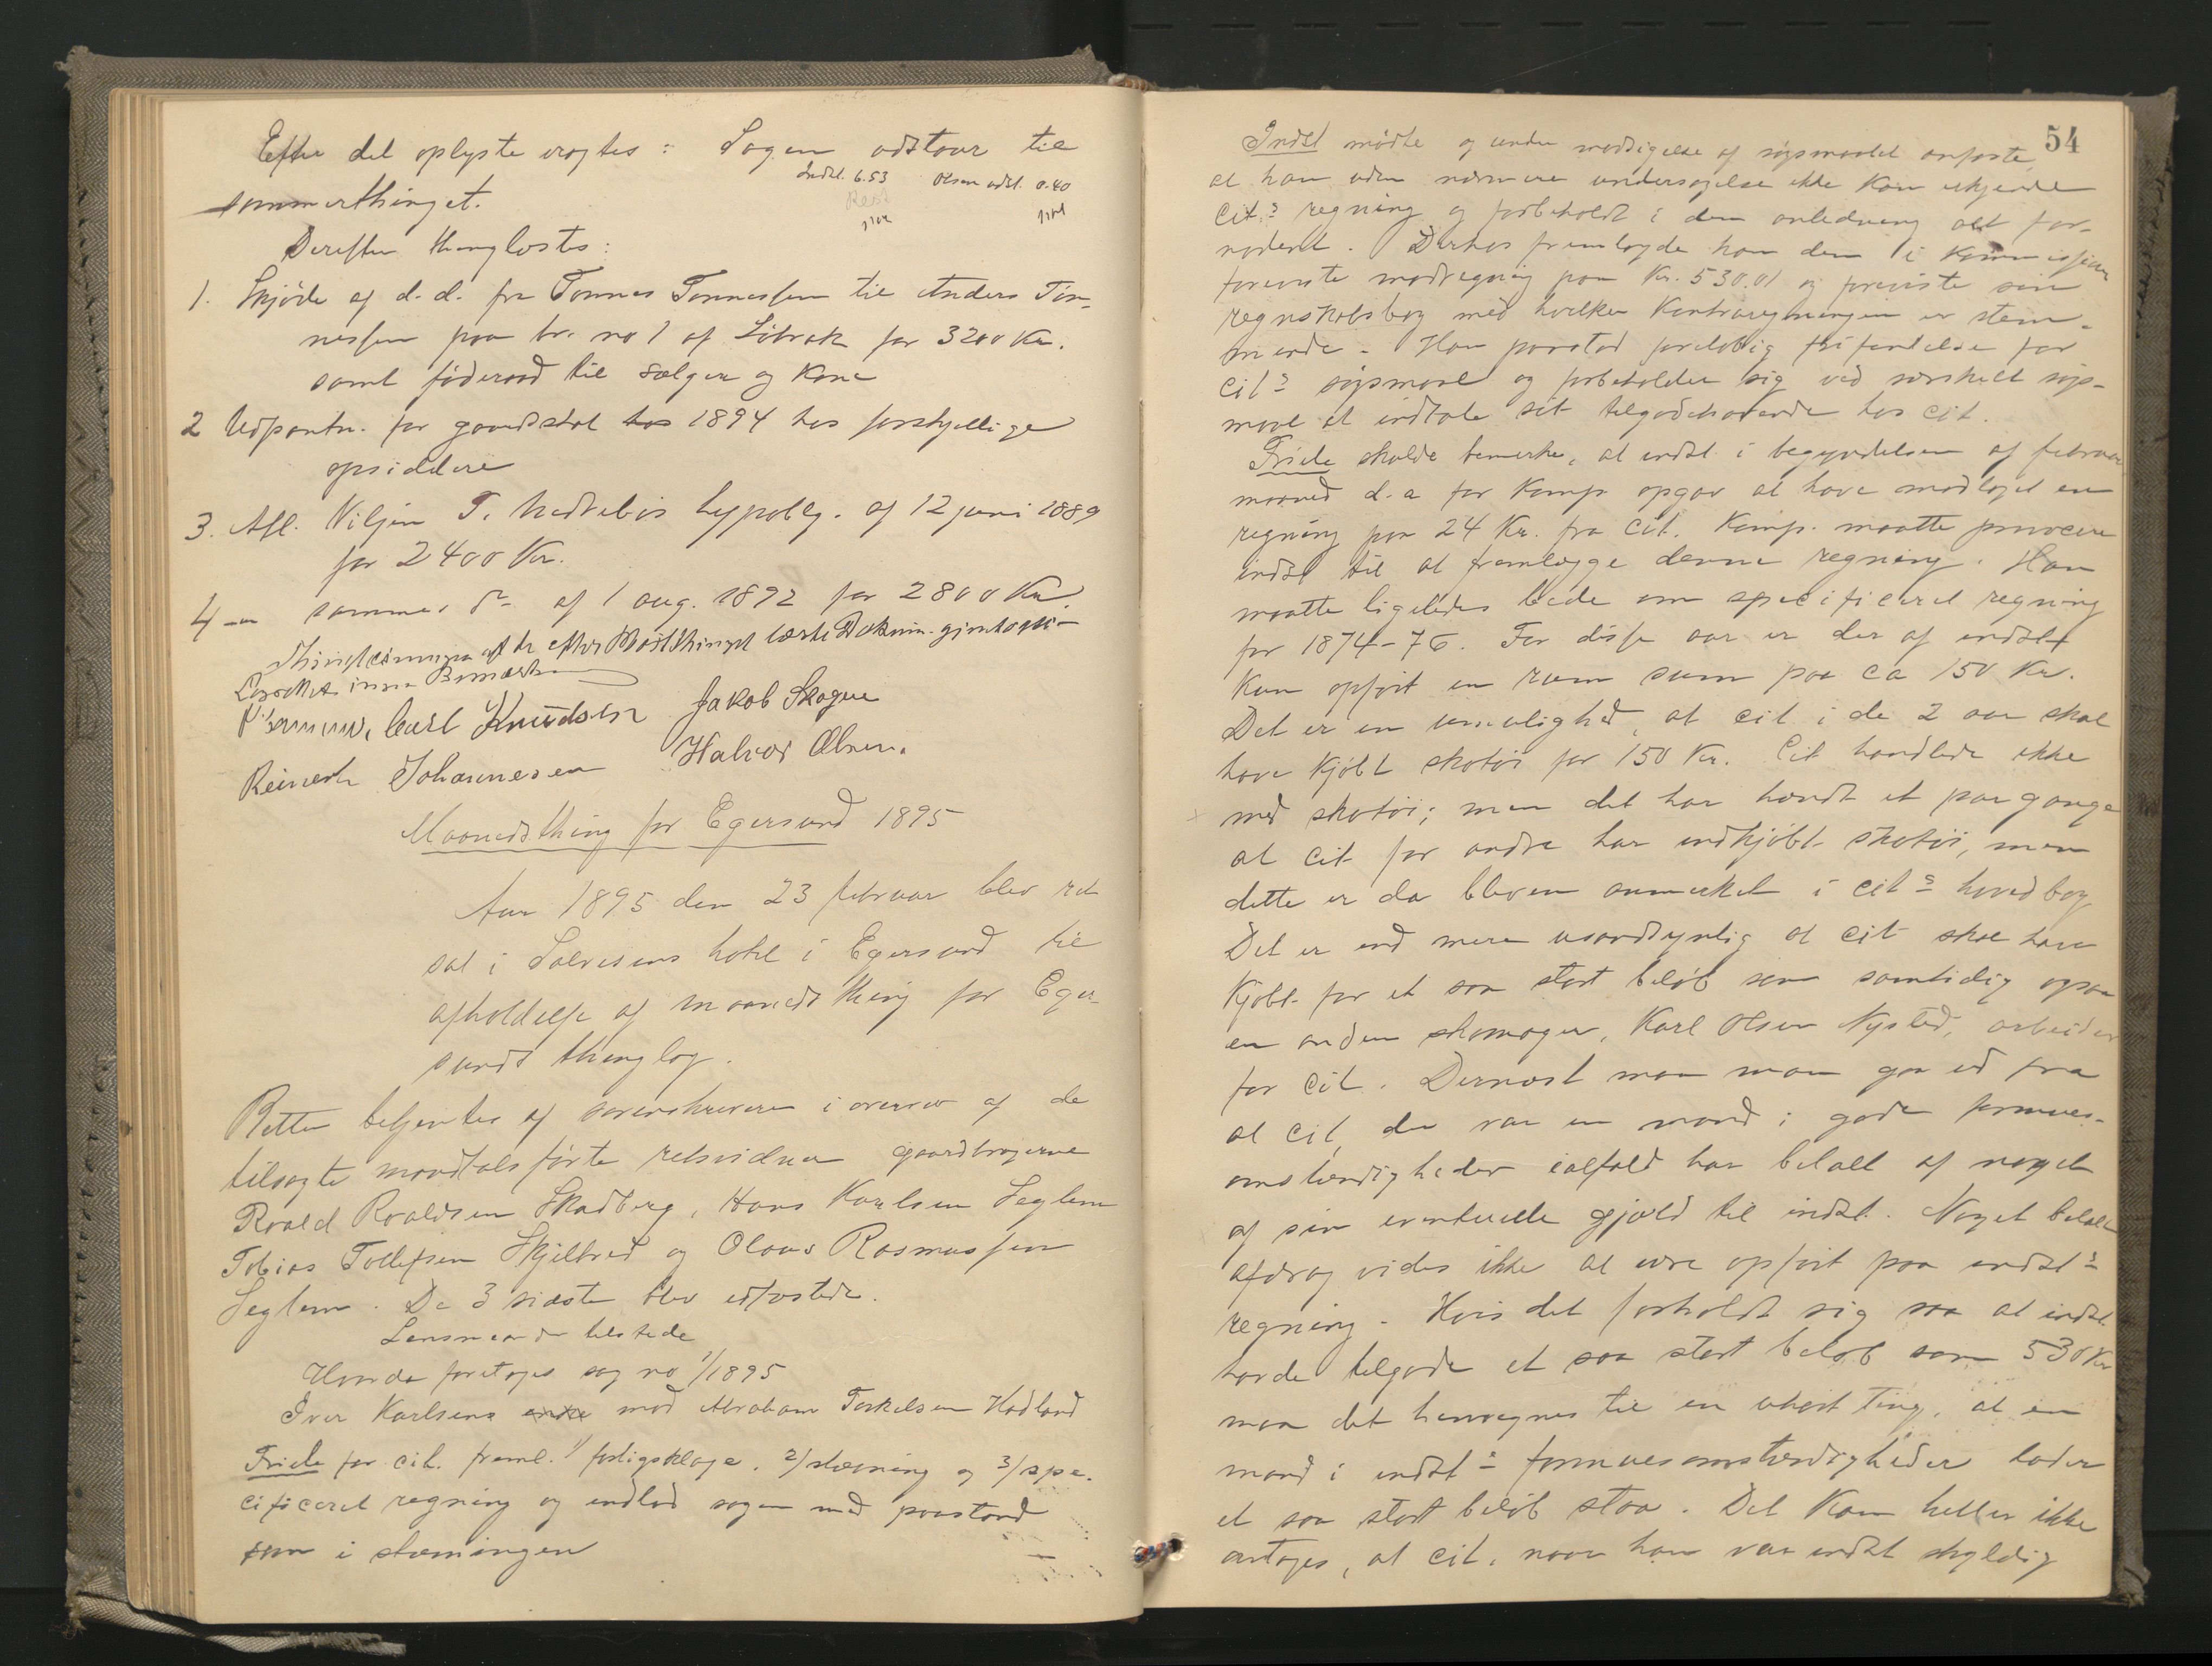 Efter det oplyste eragtes: Sagen udstaar til
Indst. 6.53 Olsen udst. 0.40
sommerthinget.
Derefter thinglæstes:
1. Skjøde af d.d. fra Tønnes Tønnessen til Anders Tøn-
nessen paa br. no 1 af Libræk for 3200 Kr.
samt føderaad til sælger og Kone
2 Udpantn. for grundskat hos 1894 hos forskjellige
opsiddere
3. Afl. Viljen T. Hedlebøs hypoblg. af 12 juni 1889
for 2400 Kr.
4 — sammes do af 1 aug. 1892 for 2800 Kr.
Carl Knudsen Jakob Skogen
Reinert Johannesen Halvor Olsen.
Maanedsthing for Egersund 1895
Aar 1895 den 23 februar blev ret
sat i Salvesens hotel i Egersund til
afholdelse af maanedsthing for Eger-
sunds thinglag.
Retten betjentes af sorenskriveren i overvær af de
tilsagte mandtalsførte retsvidner gaardbrugerne
Roald Roaldsen Skadberg, Hans Karlsen Seglem
Tobias Tollefsen Skjelbred og Olaus Rasmussen
Seglem. De 3 sidste blev edfæstede.
Lensmanden tilstede
Hvorda foretoges sag no 1/1895
Iver Karlsens mod Abraham Torkelsen Hadland
Friele for cit. freml. 1/ forligsklage, 2/ stævning og 3/ spe-
cificeret regning og indlod sagen med paastand
som i stævningen
54
Indst mødte og under modsigelse af søgsmaalet anførte,
at han uden nærmere undersøgelse ikke kan erkjende
cits regning og forbeholdt i den anledning alt for-
nødent. Derhos fremlagde han den i Kommissionen
foreviste modregning paa Kr. 530.01 og foreviste sin
regnskabsbog med hvilken Kontraregningen er stem-
mende. Han paastod foreløbig frifindelse for
cits søgsmaal og forbeholder sig ved særskilt søgs-
maal at indtale sit tilgodehavende hos cit.
Friele skulde bemerke, at indst i begyndelsen af februar
maaned d.a. for Komp. opgav at have modtaget en
regning paa 24 Kr. fra cit. Komp. maatte provocere
indst til at fremlægge denne regning. Han
maatte ligeledes bede om specificeret regning
for 1874-76. For disse aar er der af indst
kun opført en rum sum paa ca 150 Kr.
Det er en umulighed, at cit i de 2 aar skal
have kjøbt skotøi for 150 Kr. Cit handlede ikke
med skotøi; men det har hændt et par gange
at cit for andre har indkjøbt skotøi, men
dette er da bleven anmerket i cits hovedbog
Det er end mere usandsynlig at cit skal have
kjøbt for et saa stort beløb som samtidig ogsaa
en anden skomager, Karl Olsen Nysted, arbeider
for cit. Dernæst maa man gaa ud fra
at cit, der var en mand i gode formues-
omstændigheder ialfald har betalt af noget
af sin eventuelle gjæld til indst. Noget betalt
afdrag vides ikke at være opført paa indsts
regning. Hvis det forholdt sig saa at indst
havde tilgode et saa stort beløb som 530 Kr
maa det henregnes til en uhørt ting, at en
mand i indsts formuesomstændigheder lader
et saa stort beløb staa. Det kan heller ikke
antages, at cit, naar han var indst skyldig